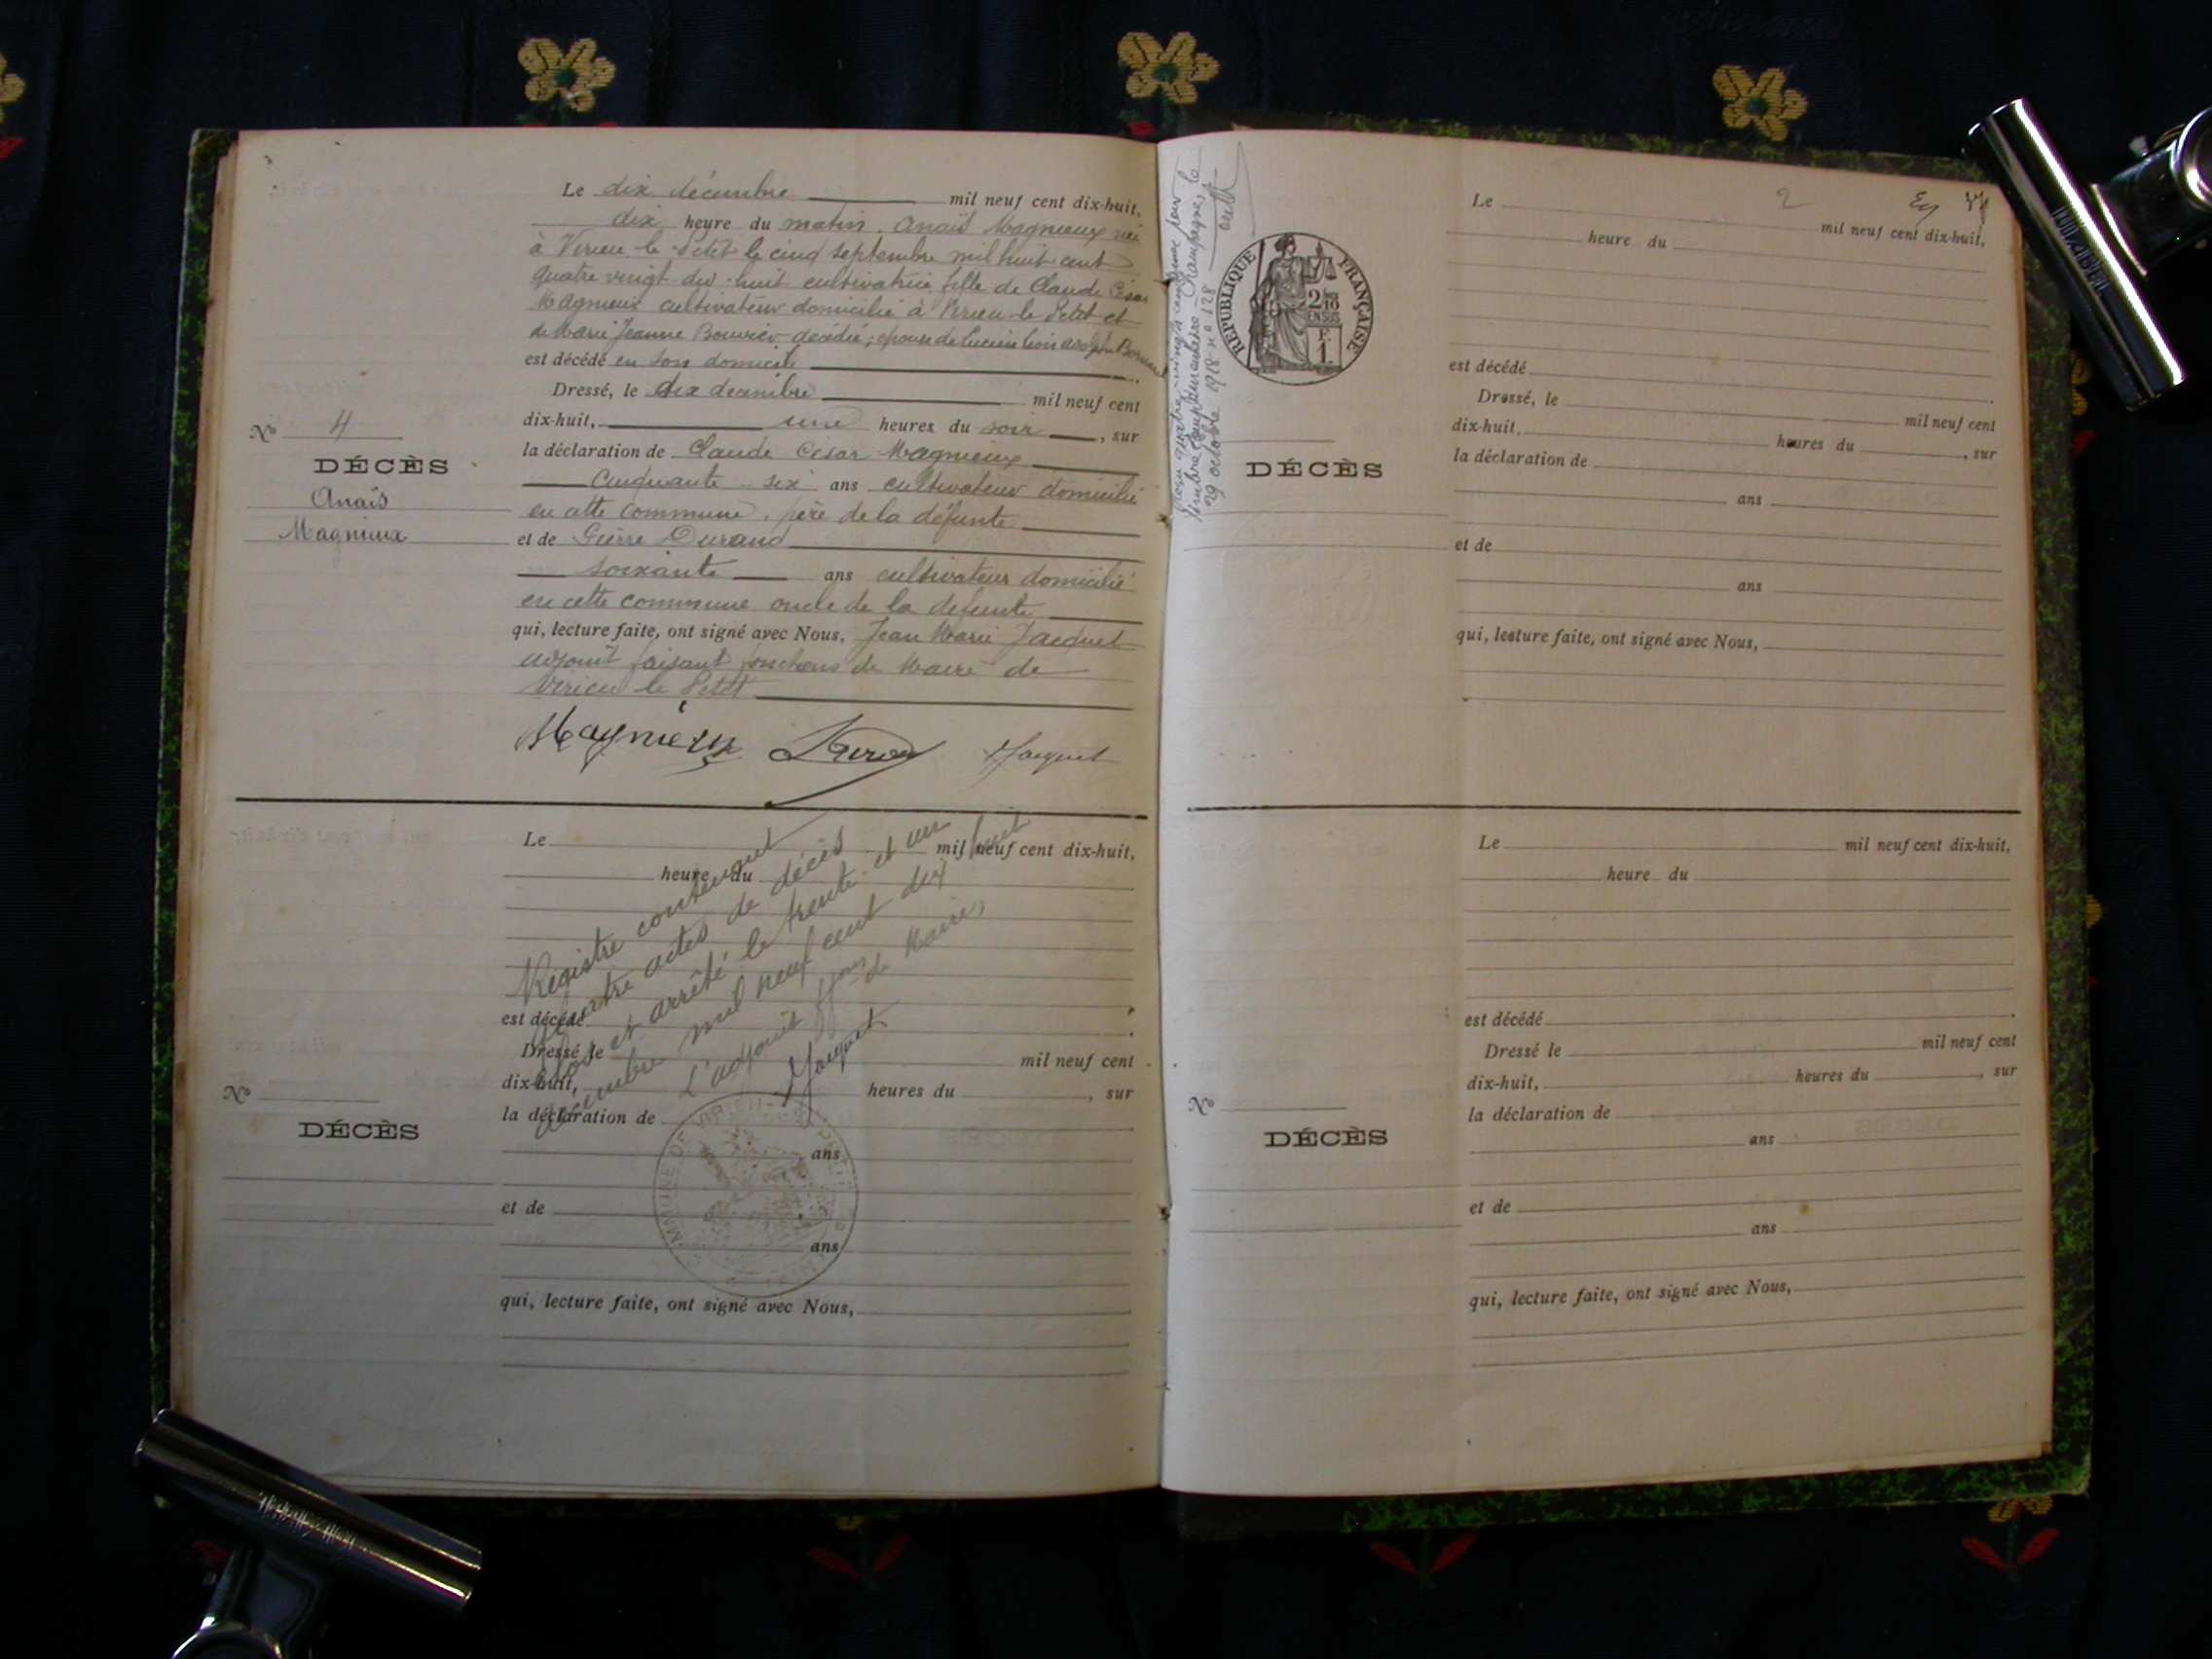 Le dix décembre mil neuf cent dix-huit,
dix heure du matin. Anaïs Magnieux née
à Virieu le Petit le cinq septembre mil huit cent
quatre vingt dix-huit cultivatrice fille de Claude César
Magnieux cultivateur domicilié à Virieu-le-Petit et
de Marie Jeanne Bouvier décédée, épouse de Lucien Léon
est décédé en son domicile
Dressé, le dix décembre mil neuf cent
dix-huit, une heures du soir, sur
la déclaration de Claude César Magnieux
Cinquante six ans cultivateur domicilié
en cette commune, père de la défunte
et de Pierre Durand
soixante ans cultivateur domicilié
en cette commune oncle de la défunte
qui, lecture faite, ont signé avec Nous, Jean Marie Jacquet
adjoint faisant fonctions de Maire de
Virieu le Petit
Magnieux Jacquet
No 4
DÉCÈS
Anaïs
Magnieux
Le mil neuf cent dix-huit,
heure du
est décédé
Dressé le mil neuf cent
dix-huit, heures du , sur
la déclaration de
ans
et de
ans
qui, lecture faite, ont signé avec Nous,
Registre contenant
quatre actes de décès
clos et arrêté le trente et un
décembre mil neuf cent dix huit
L'adjoint de Maire
Jacquet
COMMUNE DE VIRIEU
No
DÉCÈS
2
Le mil neuf cent dix-huit,
heure du
est décédé
Dressé, le mil neuf cent
dix-huit, heures du , sur
la déclaration de
ans
et de
ans
qui, lecture faite, ont signé avec Nous,
Champagne, le
29 octobre 1918 no 128
REPUBLIQUE FRANÇAISE
2/10
EN SUS
F.
1.
DÉCÈS
Le mil neuf cent dix-huit,
heure du
est décédé
Dressé le mil neuf cent
dix-huit, heures du , sur
la déclaration de
ans
et de
ans
qui, lecture faite, ont signé avec Nous,
No
DÉCÈS